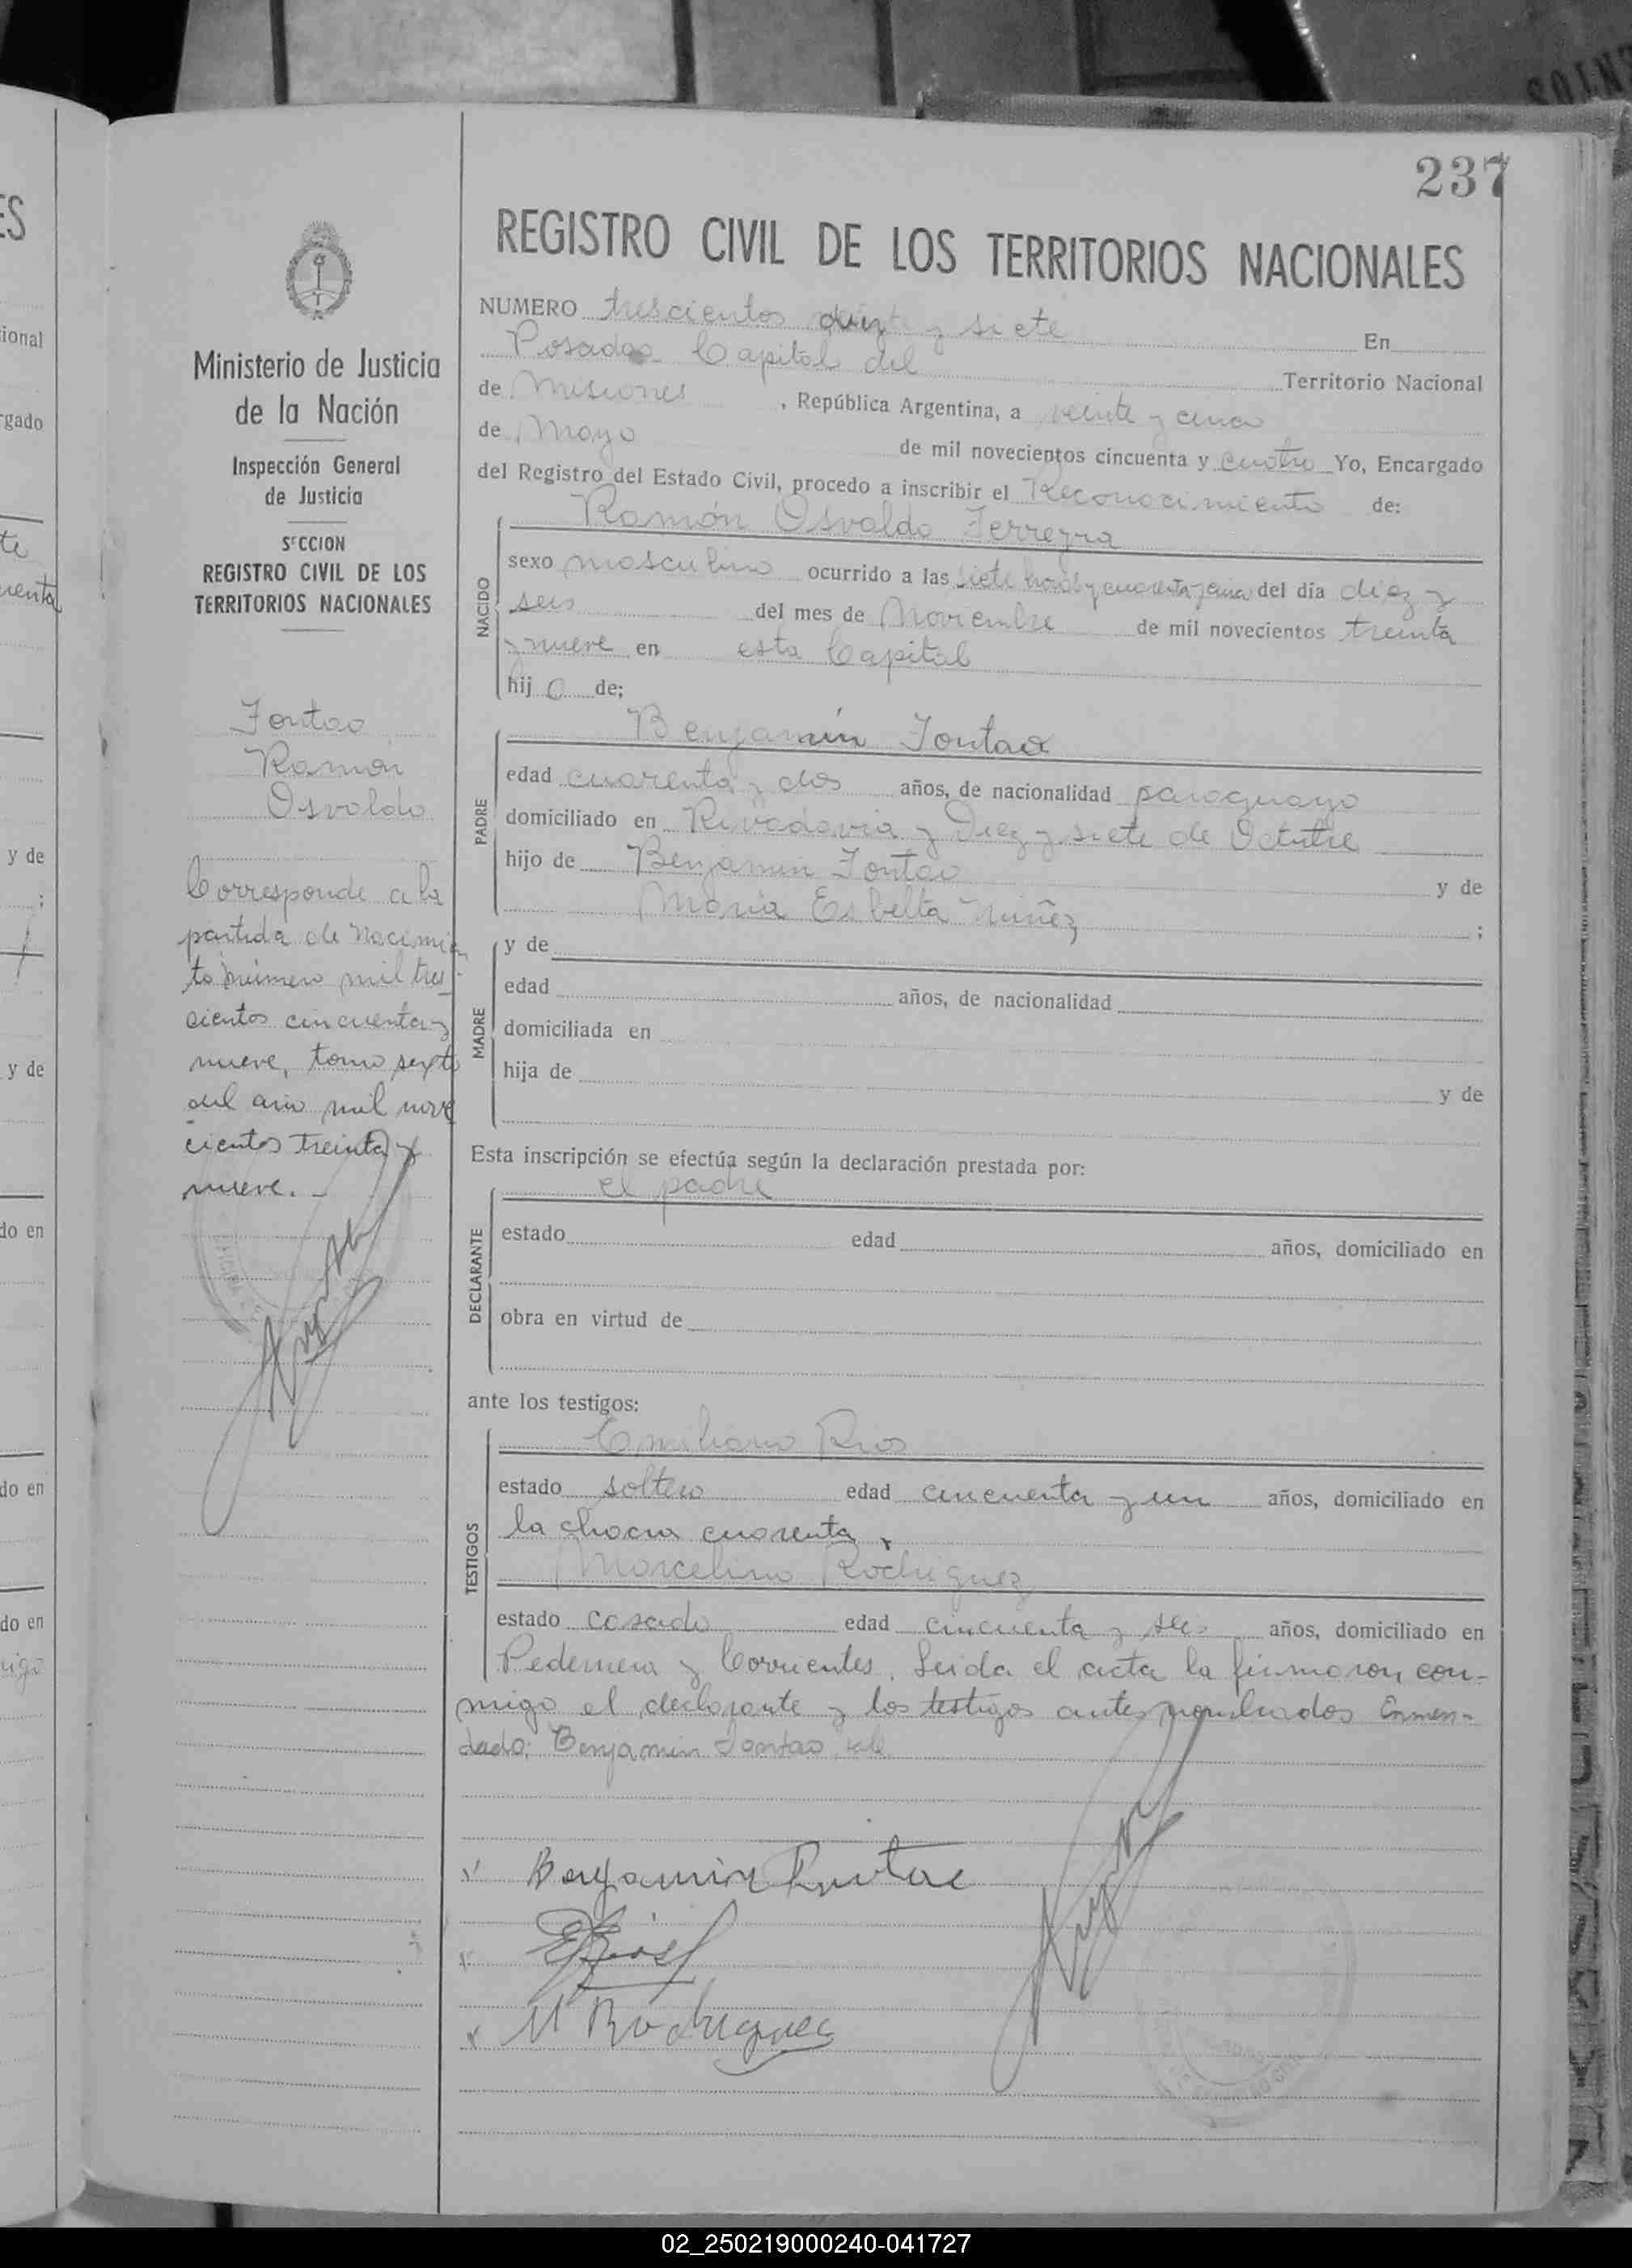 237
REGISTRO CIVIL DE LOS TERRITORIOS NACIONALES
Ministerio de Justicia
de la Nación
Inspección General
de Justicia
SECCION
REGISTRO CIVIL DE LOS
TERRITORIOS NACIONALES
Fontao
Ramón
Osvaldo
Corresponde a la
partida de Nacimien
to número mil tres
cientos cincuenta y
nueve, tomo sexto
del año mil nove
cientos treinta y
nueve.-
NUMERO trescientos y siete En
Posadas Capital del Territorio Nacional
de Misiones, República Argentina, a veinte y cinco
de Mayo de mil novecientos cincuenta y cuatro Yo, Encargado
del Registro del Estado Civil, procedo a inscribir el Reconocimiento de:
NACIDO
Ramón Osvaldo Ferreyra
sexo masculino ocurrido a las siete horas y cuarenta y cinco del día diez y
seis del mes de Noviembre de mil novecientos treinta
y nueve en esta Capital
hijo de;
PADRE
Benjamín Fontao
edad cuarenta y dos años, de nacionalidad paraguayo
domiciliado en Rivadavia y Diez y siete de Octubre
hijo de Benjamin Fontao y de
Maria Esbelta Nuñez ;
MADRE
y de
edad años, de nacionalidad
domiciliada en
hija de y de
Esta inscripción se efectúa según la declaración prestada por:
DECLARANTE
el padre
estado edad años, domiciliado en
obra en virtud de
ante los testigos:
TESTIGOS
Emiliano Rios
estado soltero edad cincuenta y un años, domiciliado en
la chacra cuarenta y
Marcelino Rodriguez
estado casado edad cincuenta y seis años, domiciliado en
Pedernera y Corrientes. Leida el acta la firmaron con-
migo el declarante y los testigos antes nombrados Enmen-
dado: Benjamin Fontao vale
Benjamin Fontao
E Rios
M Rodriguez
02_250219000240-041727